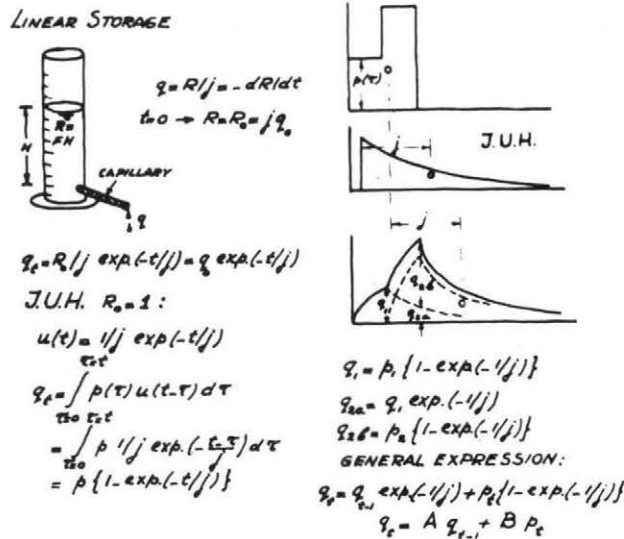 LINEAR STORAGE
q = R/j = -dR/dt
t=0 → R=R₀=jq₀
R=
FH
H
CAPILLARY
q
qₜ = R₀/j exp.(-t/j) = q₀ exp.(-t/j)
J.U.H. R₀ = 1 :
u(t) = 1/j exp(-t/j)
τ=t
qₜ = ∫ p(τ) u(t-τ) dτ
τ=0 τ=t
= ∫ p 1/j exp.(-t-τ/j) dτ
τ=0
= p {1 - exp.(-t/j)}
p(τ)
j
J.U.H.
j
q₁
q₂b
q₂a
q₁ = p₁ {1 - exp.(-1/j)}
q₂a = q₁ exp.(-1/j)
q₂b = p₂ {1 - exp.(-1/j)}
GENERAL EXPRESSION:
qₜ = qₜ₋₁ exp.(-1/j) + pₜ {1 - exp.(-1/j)}
qₜ = A qₜ₋₁ + B pₜ